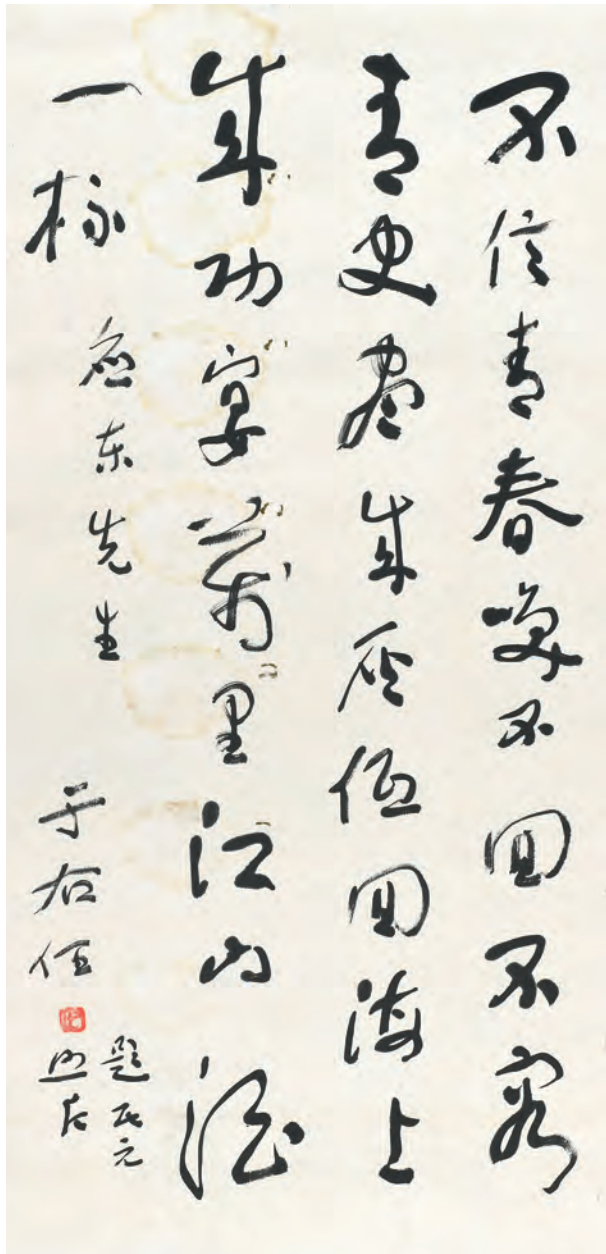 不信青春喚不回不容
青史盡成灰低回海上
成功宴萬里江山酒
一杯
應東先生
于右任
題民元
照片